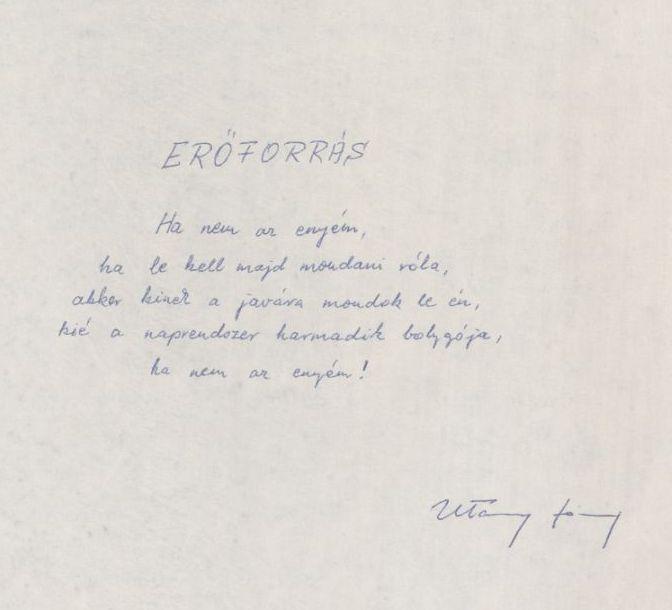 ERŐFORRÁS
Ha nem az enyém,
ha le kell majd mondani róla,
akkor kinek a javára mondok le én,
kié a naprendszer harmadik bolygója,
ha nem az enyém!
Utassy József